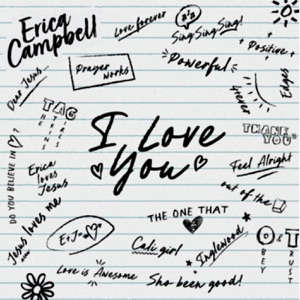 Erica
Campbell
Love forever
Sing Sing Sing!
+ Positive +
Dear Jesus...
Prayer
works
"Powerful"
4ever
Edges
TAG
THE
I Love
You
THANK
YOU
Feel Alright
DO YOU BELIEVE IN
?
Erica
loves
Jesus
out of the
Jesus loves me
THE ONE THAT
E+J=
Cali girl
Inglewood
O & T
BEY
RUST
Love is Awesome
Sho been good!